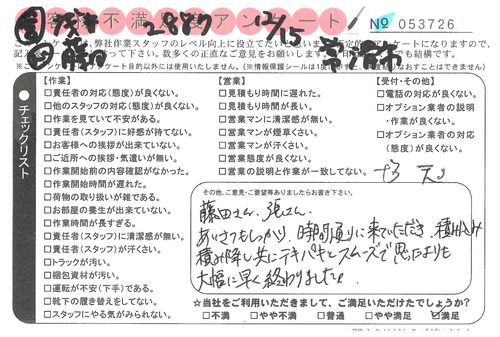 お客様不満足度アンケート № 053726
2887 12/15
弊社作業スタッフのレベル向上に役立てたいと
チェックリスト
【作業】
□責任者の対応(態度)が良くない。
□他のスタッフの対応(態度)が良くない。
□作業を見ていて不安がある。
□責任者(スタッフ)に好感が持てない。
□お客様への挨拶が出来ていない。
□ご近所への挨拶・気遣いが無い。
□作業開始前の内容確認がなかった。
□作業開始時間が遅れた。
□荷物の取り扱いが雑である。
□お部屋の養生が出来ていない。
□作業時間が長すぎる。
□責任者(スタッフ)に清潔感が無い。
□責任者(スタッフ)が汗くさい。
□トラックが汚い。
□梱包資材が汚い。
□運転が不安(下手)である。
□靴下の履き替えをしてない。
□スタッフにやる気がみられない。
【営業】
□見積もり時間に遅れた。
□見積もり時間が長い。
□営業マンに清潔感が無い。
□営業マンが煙草くさい。
□営業マンが汗くさい。
□営業態度が良くない。
□営業の説明と作業が一致してない。
【受付・その他】
□電話の対応が良くない。
□オプション業者の説明・作業が良くない。
□オプション業者の対応(態度)が良くない。
その他、ご意見・ご要望等ありましたらお書き下さい。
藤田さん、張さん、
あいさつもしっかり、時間通りに来ていただき、積み込み
積み降し共にテキパキとスムーズで思ったよりも
大幅に早く終わりました。
☆当社をご利用いただきまして、ご満足いただけたでしょうか?
□不満 □やや不満 □普通 □やや満足 ☑満足